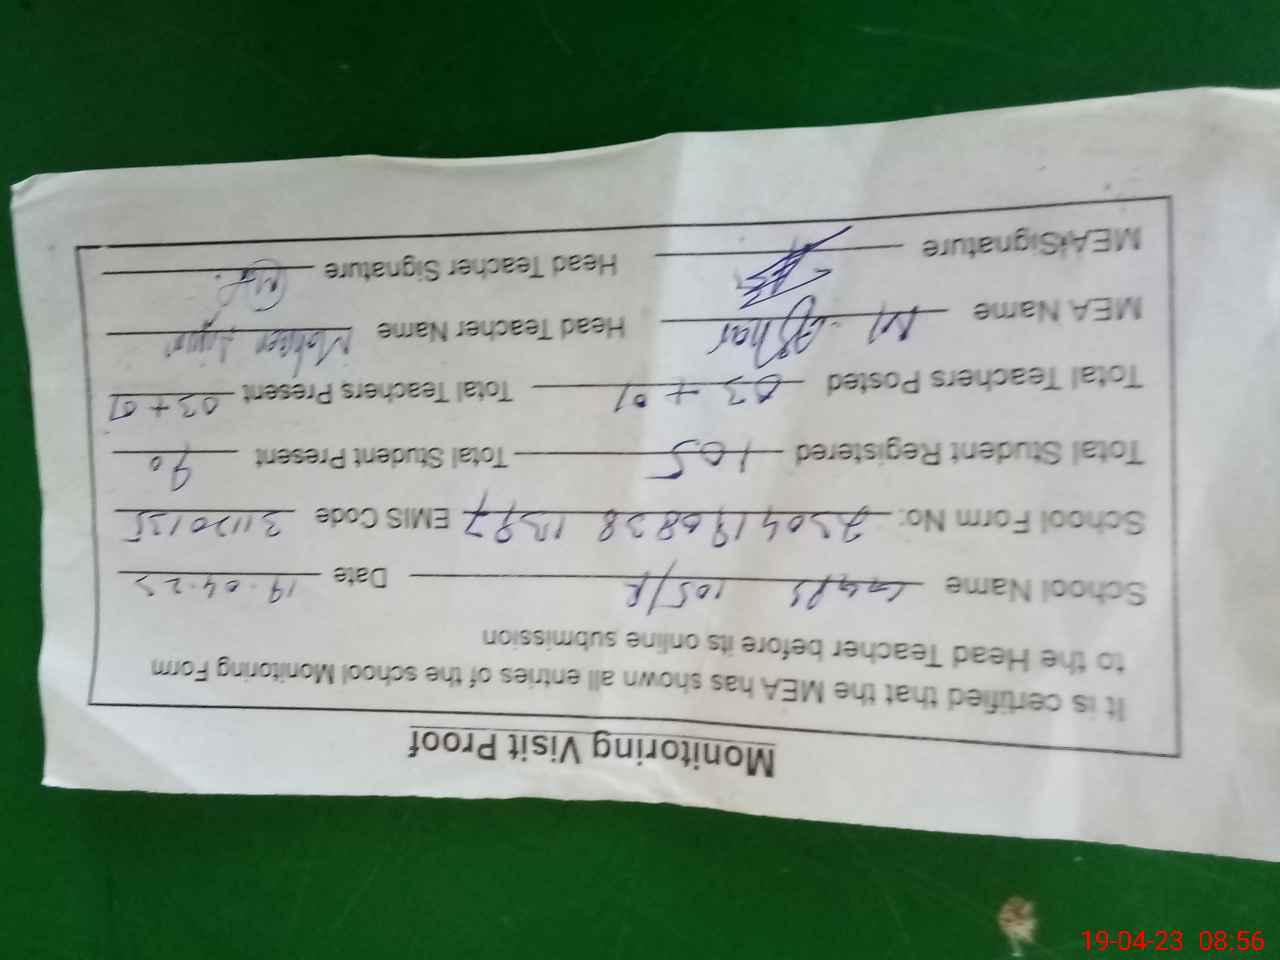 Monitoring Visit Proof
It is certified that the MEA has shown all entries of the school Monitoring Form
to the Head Teacher before its online submission
School Name GGPS 105/R Date 19.04.23
School Form No: EMIS Code 31120135
Total Student Registered 105 Total Student Present 90
Total Teachers Posted 03 + 01 Total Teachers Present 03 + 01
MEA Name M. Head Teacher Name
MEA Signature Head Teacher Signature
19-04-23 08:56